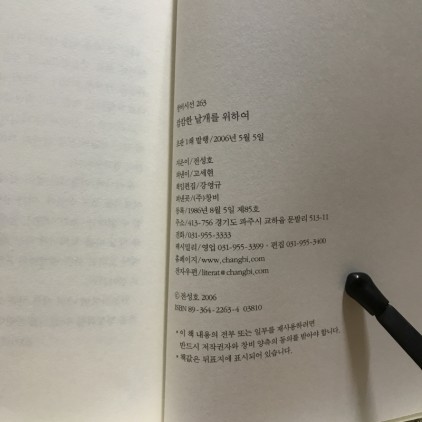 창비시선 263
캄캄한 날개를 위하여
초판 1쇄 발행/2006년 5월 5일
지은이/전성호
펴낸이/고세현
책임편집/강영규
펴낸곳/(주)창비
등록/1986년 8월 5일 제85호
주소/413-756 경기도 파주시 교하읍 문발리 513-11
전화/031-955-3333
팩시밀리/영업 031-955-3399·편집 031-955-3400
홈페이지/www.changbi.com
전자우편/literat@changbi.com
ⓒ 전성호 2006
ISBN 89-364-2263-4 03810
* 이 책 내용의 전부 또는 일부를 재사용하려면
반드시 저작권자와 창비 양측의 동의를 받아야 합니다.
* 책값은 뒤표지에 표시되어 있습니다.